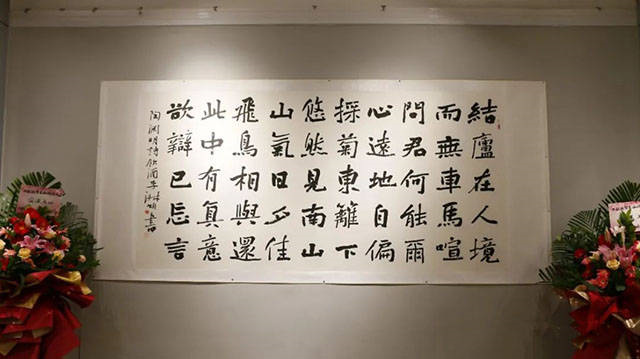 結廬在人境
而無車馬喧
問君何能爾
心遠地自偏
採菊東籬下
悠然見南山
山氣日夕佳
飛鳥相與還
此中有真意
欲辯已忘言
陶淵明詩飲酒